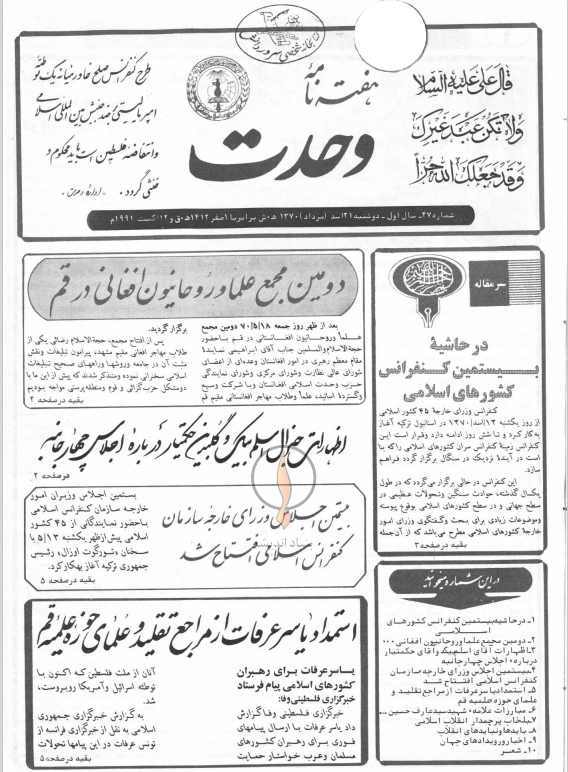 قال علی علیه السلام
ولا تکن عبد غیرک
وقد جعلک الله حراً
هفته نامه
وحدت
طرح کنفرانس صلح خاورمیانه یک توطئه
امپریالیستی بضد جنبش بین المللی اسلامی
و انتفاضه فلسطین است باید محکوم و
خنثی گردد.
شماره ۲۷- سال اول - دوشنبه ۲۱ اسد (مرداد) ۱۳۷۰ ه.ش برابر با ۱ صفر ۱۴۱۲ ه.ق و ۱۲ اگست ۱۹۹۱م
سرمقاله
در حاشیهٔ
بیستمین کنفرانس
کشورهای اسلامی
کنفرانس وزرای خارجهٔ ۴۵ کشور اسلامی
از روز یکشنبه ۱۳/اسد/۱۳۷۰ در استانبول ترکیه آغاز
به کار کرد و تا شش روز ادامه دارد و قرار است این
کنفرانس زمینهٔ کنفرانس سران کشورهای اسلامی را که بنا
است در آیندهٔ نزدیک در سنگال برگزار گردد فراهم
سازد.
این کنفرانس در حالی برگزار میگردد که در طول
یکسال گذشته، حوادث سنگین و تحولات عظیمی در
سطح جهانی و در سطح کشورهای اسلامی بوقوع پیوسته
و موضوعات زیادی برای بحث و گفتگوی وزرای امور
خارجهٔ کشورهای اسلامی مطرح می باشد که از آن جمله
بقیه در صفحه ۳
دومین مجمع علما و روحانیون افغانی در قم
بعد از ظهر روز جمعه ۷۰/۵/۱۸ دومین مجمع
علما و روحانیون افغانستانی در قم با حضور
حجة الاسلام والمسلمین جناب آقای ابراهیمی نمایندهٔ
مقام معظم رهبری در امور افغانستان و عده ای از اعضای
شورای عالی نظارت و شورای مرکزی و شورای نمایندگی
حزب وحدت اسلامی افغانستان و با شرکت وسیع
و گستردهٔ اساتید، علما و طلاب مهاجر افغانستانی مقیم قم
برگزار گردید.
پس از افتتاح مجمع، حجة الاسلام رضائی یکی از
طلاب مهاجر افغانی مقیم مشهد، پیرامون تبلیغات و نقش
مثبت آن در جامعه و روشها و راههای صحیح تبلیغات
اسلامی سخنرانی نموده و متذکر شدند که پیش از این ما با
دو مشکل حزب گرائی و قوم و منطقه پرستی مواجه بودیم
بقیه در صفحه ۲
اظهارات جنرال اسلم بیگ و گلبدین حکمتیار درباره اجلاس چهار جانبه
در صفحه ۲
بیستمین اجلاس وزرای خارجه سازمان
کنفرانس اسلامی افتتاح شد
بیستمین اجلاس وزیران امور
خارجه سازمان کنفرانس اسلامی
با حضور نمایندگانی از ۴۵ کشور
اسلامی پیش از ظهر یکشنبه ۵/۱۳ با
سخنان «تورگوت اوزال» رئیس
جمهوری ترکیه آغاز بهکار کرد.
بقیه در صفحه ۵
استمداد یاسر عرفات از مراجع تقلید و علمای حوزه علمیه قم
یاسر عرفات برای رهبران
کشورهای اسلامی پیام فرستاد
خبرگزاری فلسطینی وفا:
خبرگزاری فلسطینی وفا گزارش
داد یاسر عرفات با ارسال پیامهای
فوری برای رهبران کشورهای
مسلمان و عرب خواستار حمایت
آنان از ملت فلسطین که اکنون با
توطئه اسرائیل و آمریکا روبروست،
شد.
به گزارش خبرگزاری جمهوری
اسلامی به نقل از خبرگزاری فرانسه از
تونس عرفات در این پیامها تحولات
بقیه در صفحه ۵
در این شماره میخوانید
۱- در حاشیه بیستمین کنفرانس کشورهای
اسلامی
۲- دومین مجمع علما و روحانیون افغانی ...
۳- اظهارات آقای اسلم بیگ و آقای حکمتیار
درباره اجلاس چهارجانبه
۴- بیستمین اجلاس وزرای خارجه سازمان
کنفرانس اسلامی افتتاح شد
۵- استمداد یاسر عرفات از مراجع تقلید و
علمای حوزه علمیه قم
۶- مبارزات علامه شهید سید عارف حسین ...
۷- بلخاب پرچمدار انقلاب اسلامی
۸- بایدها و نبایدهای انقلاب
۹- اخبار و رویدادهای جهان
۱۰- شعر